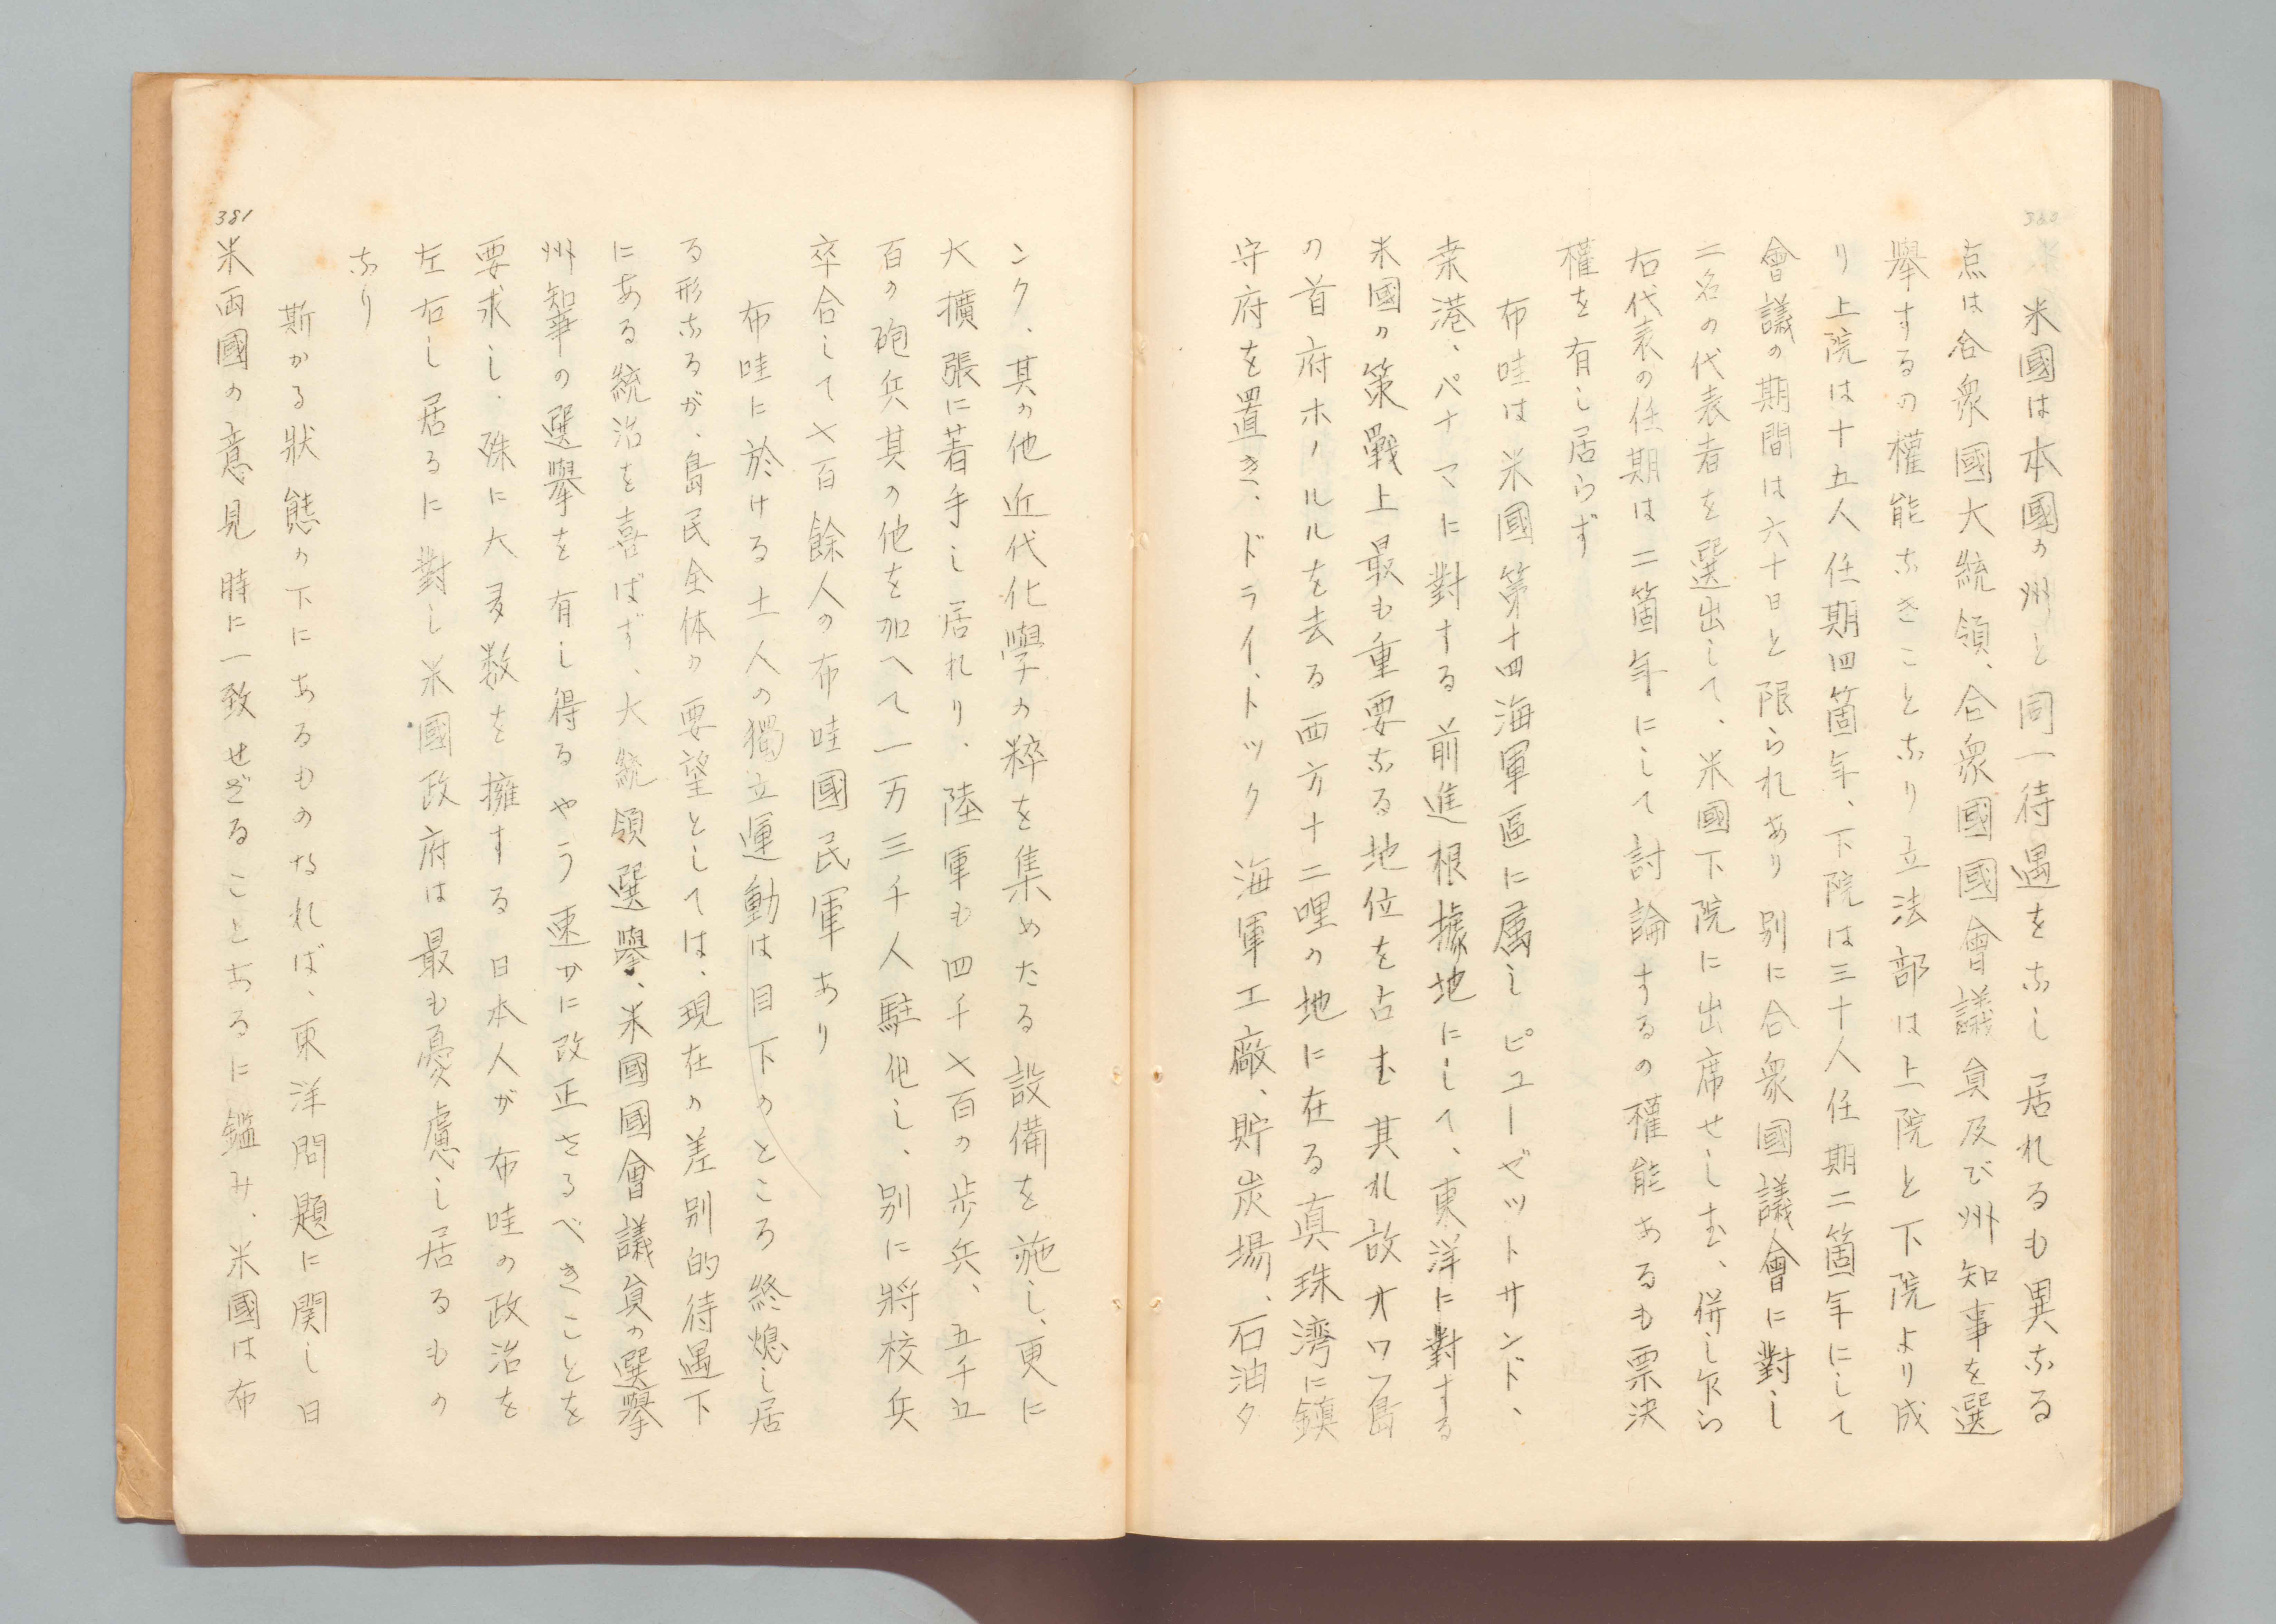 米國は本國の州と同一待遇をなし居れるも異なる
点は合衆國大統領、合衆國國會議員及び州知事を選
擧するの權能なきことなり立法部は上院と下院より成
り上院は十五人任期四箇年、下院は三十人任期二箇年にして
會議の期間は六十日と限られあり別に合衆國議會に對し
二名の代表者を選出して、米國下院に出席せしむ、併し乍ら
右代表の任期は二箇年にして討論するの權能あるも票決
權を有し居らず
布哇は米國第十四海軍區に属しピューゼットサンド、
桑港、パナマに對する前進根據地にして、東洋に對する
米國の策戰上最も重要なる地位を占む其れ故オワフ島
の首府ホノルルを去る西方十二哩の地に在る真珠湾に鎮
守府を置き、ドライ、トック 海軍工廠、貯炭場、石油タ
ンク、其の他近代化學の粹を集めたる設備を施し、更に
大擴張に着手し居れり、陸軍も四千七百の歩兵、五千五
百の砲兵其の他を加へて一万三千人駐屯し、別に將校兵
卒合して七百餘人の布哇國民軍あり
布哇に於ける土人の獨立運動は目下のところ終熄し居
る形なるが、島民全体の要望としては、現在の差別的待遇下
にある統治を喜ばず、大統領選擧、米國國會議員の選擧
州知事の選擧を有し得るやう速かに改正さるべきことを
要求し、殊に大多数を擁する日本人が布哇の政治を
左右し居るに對し米國政府は最も憂慮し居るもの
なり
斯かる狀態の下にあるものなれば、東洋問題に関し日
381
米両國の意見時に一致せざることあるに鑑み、米國は布